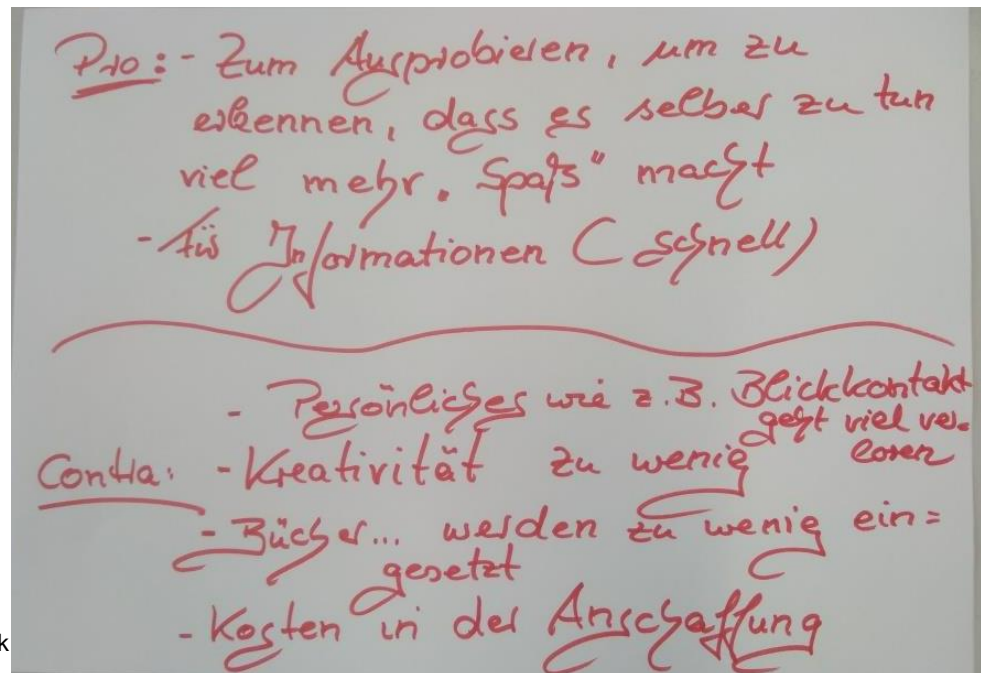 Pro: - Zum Ausprobieren, um zu
erkennen, dass es selber zu tun
viel mehr „Spaß“ macht
- für Informationen (schnell)
- Persönliches wie z.B. Blickkontakt
geht viel ver=
loren
Contra: - Kreativität zu wenig
- Bücher... werden zu wenig ein=
gesetzt
- Kosten in der Anschaffung
k